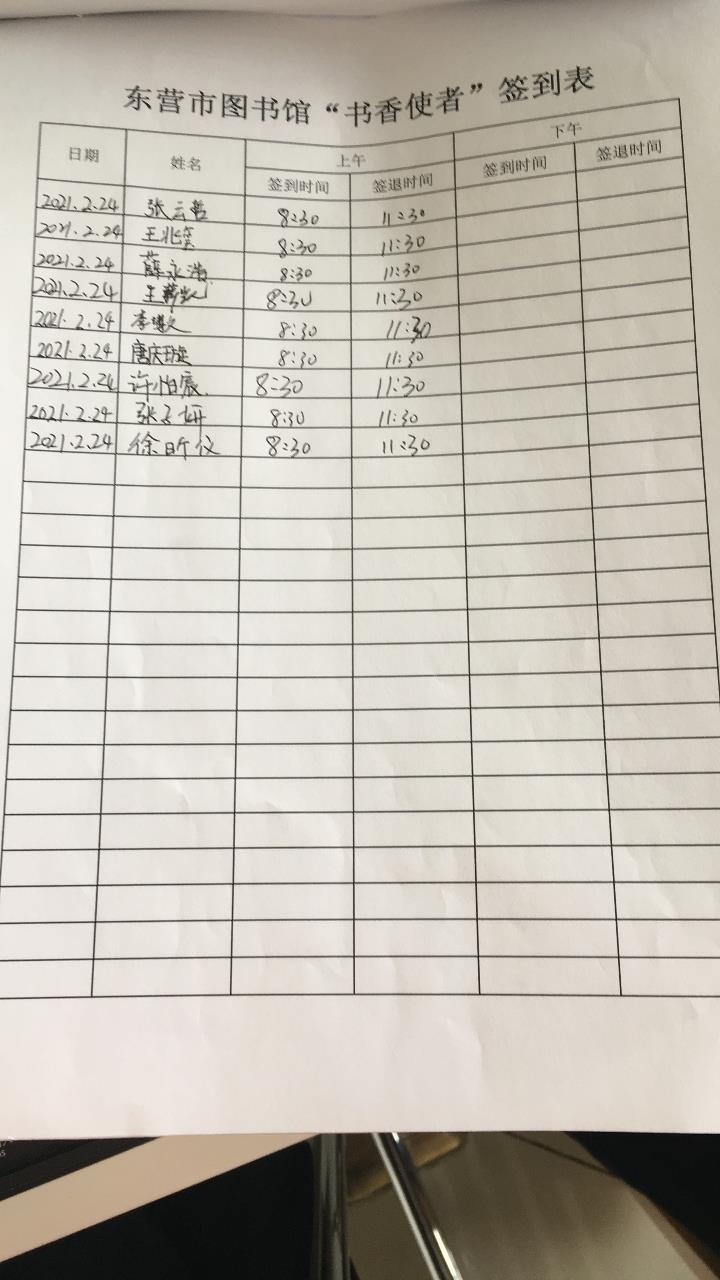 东营市图书馆“书香使者”签到表
日期 姓名 上午 下午
签到时间 签退时间 签到时间 签退时间
2021.2.24 张云 8:30 11:30
2021.2.24 王兆 8:30 11:30
2021.2.24 薛永浩 8:30 11:30
2021.2.24 王 8:30 11:30
2021.2.24 李 8:30 11:30
2021.2.24 唐庆璇 8:30 11:30
2021.2.24 许怡宸 8:30 11:30
2021.2.24 张子妍 8:30 11:30
2021.2.24 徐昕仪 8:30 11:30